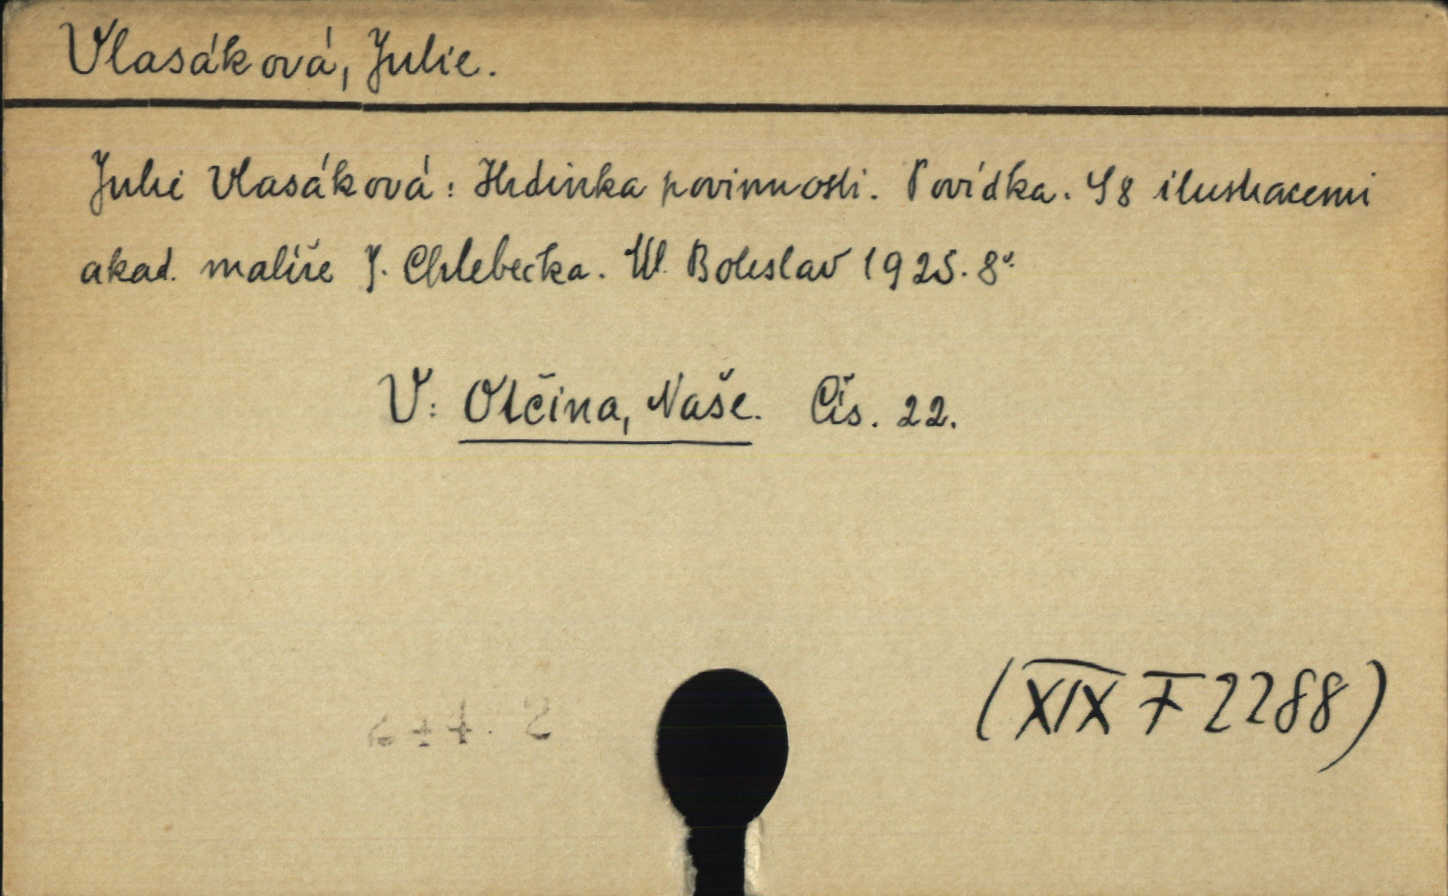 Vlasáková, Julie.
Julie Vlasáková: Hrdinka povinnosti. Povídka. S 8 ilustracemi
akad. malíře J. Chlebečka. Ml. Boleslav 1925. 8°.
V: Otčina, Naše. Čís. 22.
(XIX F 2288)